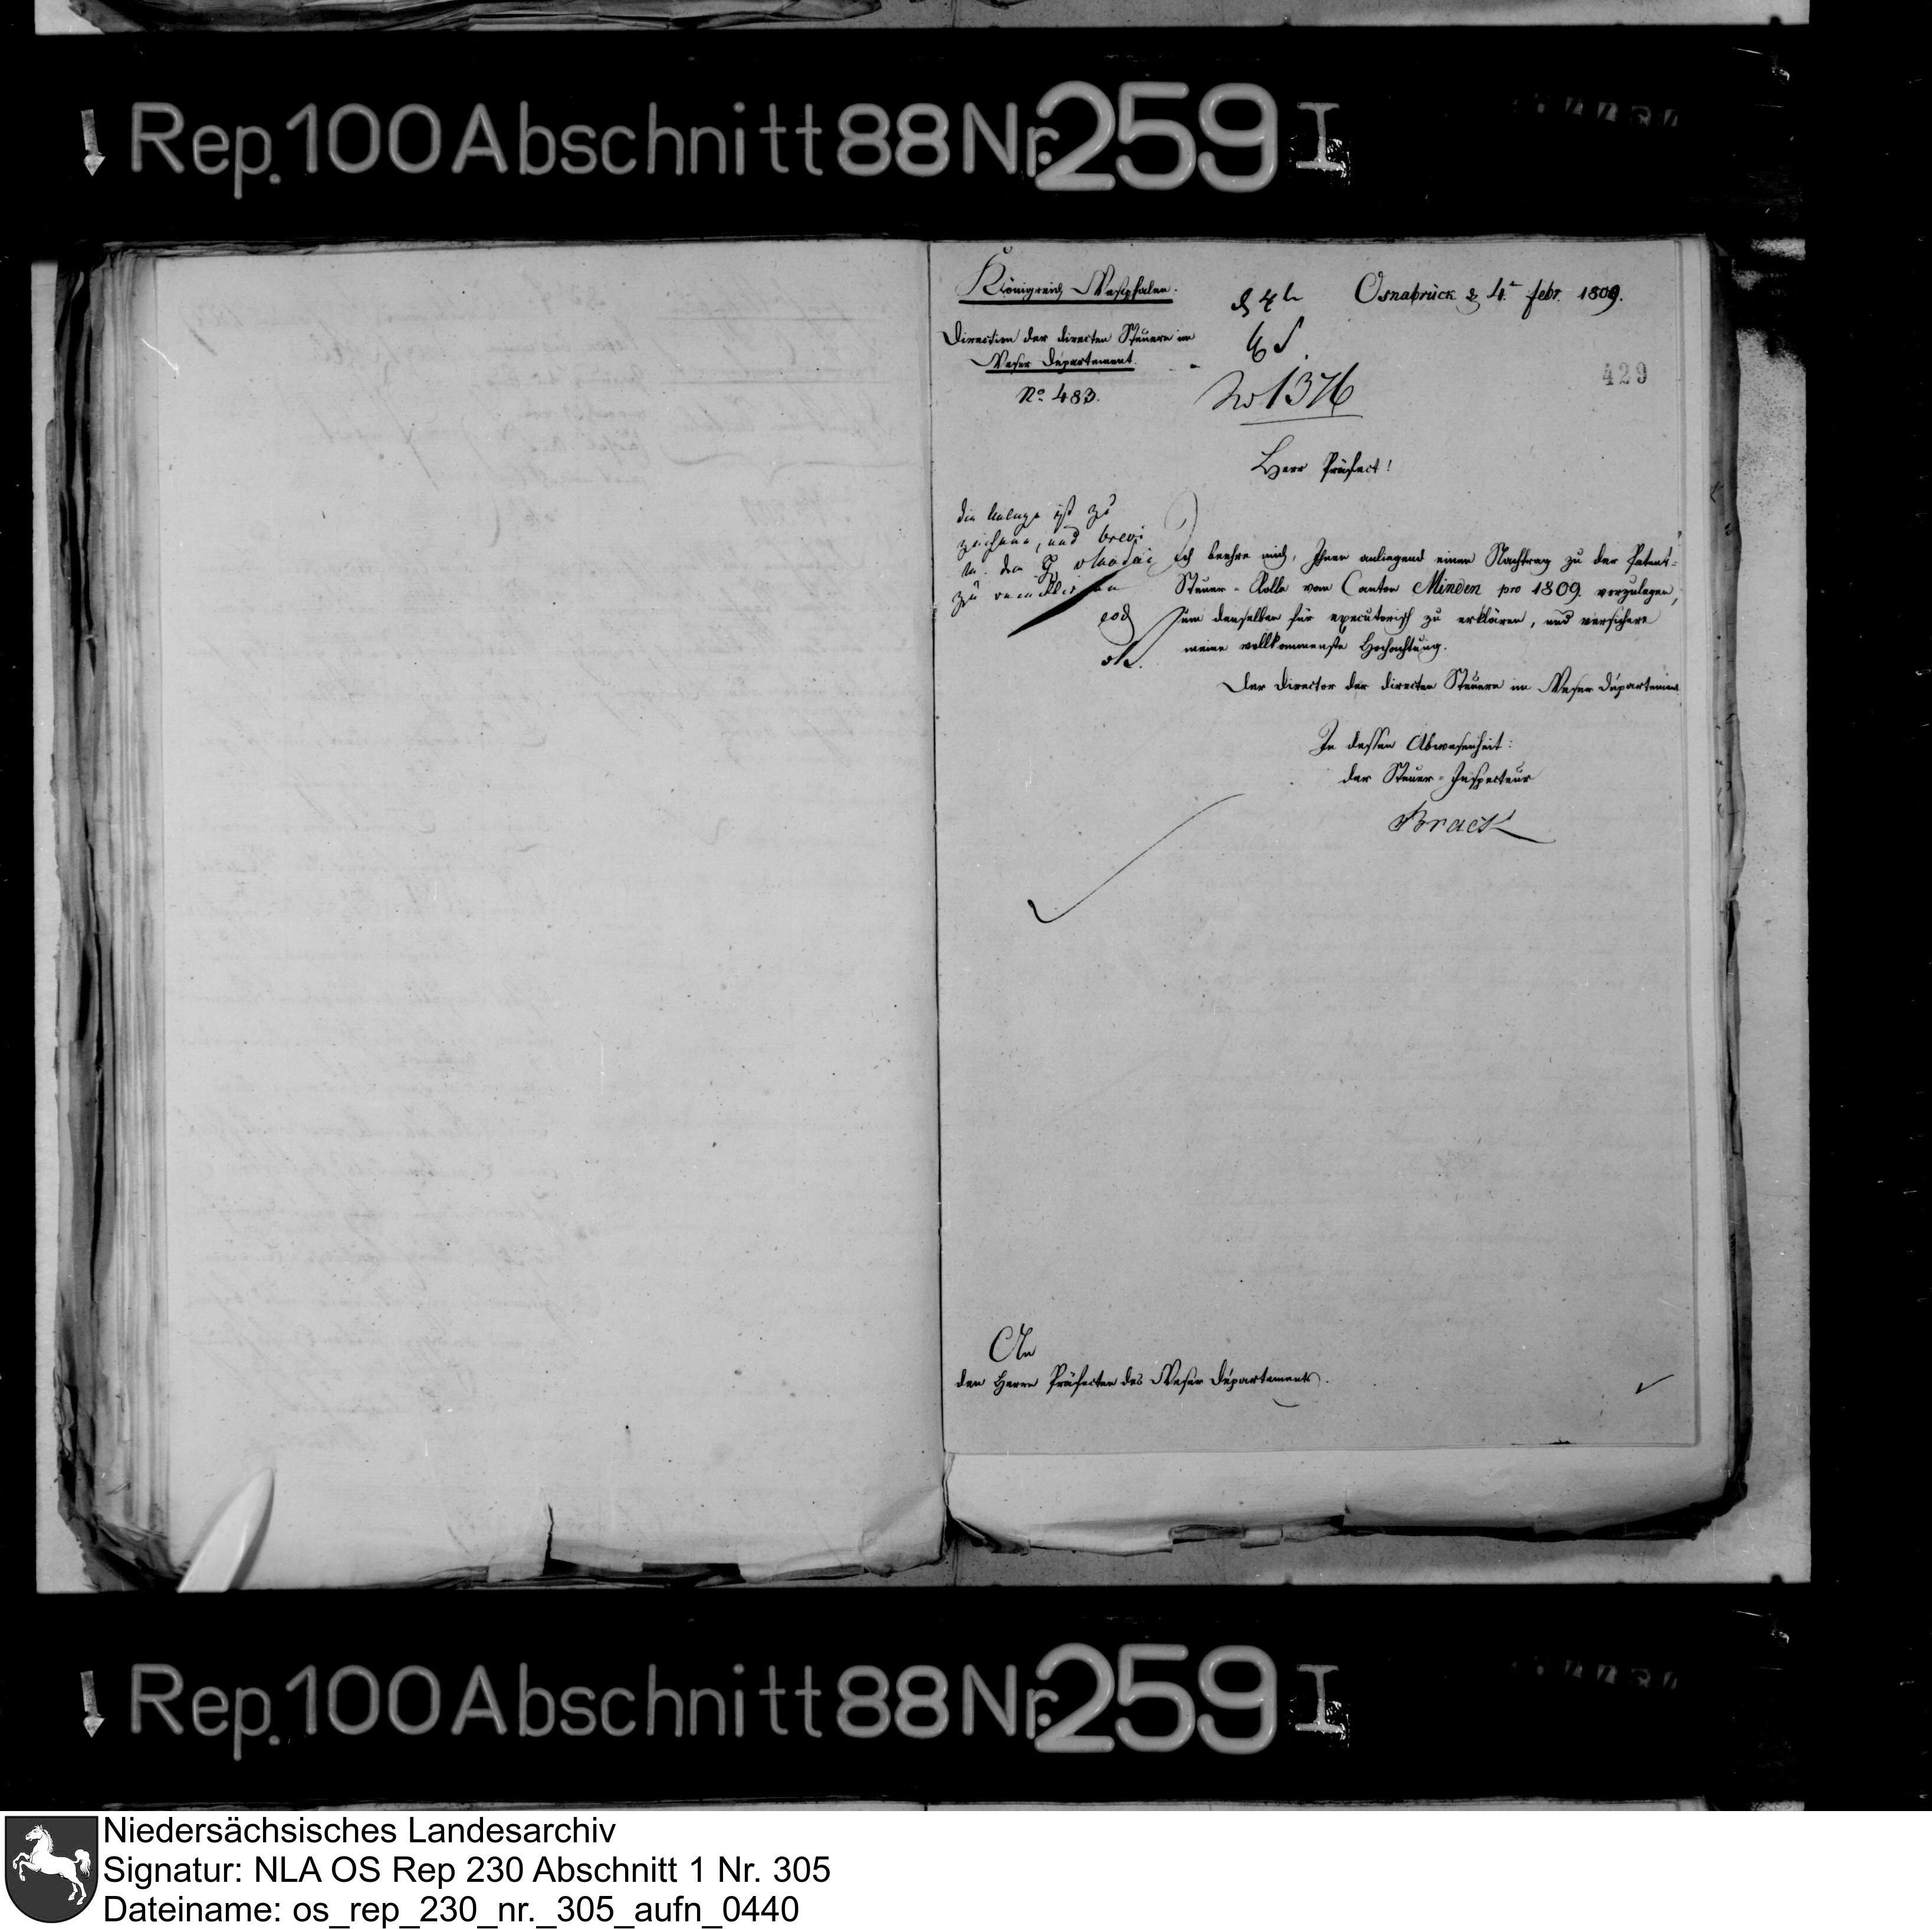 Rep. 100 Abschnitt 88 Nr. 259 I
Königreich Westphalen.
Direction der directen Steuern im
Weser Departement.
No. 483.
Osnabrück d 4t. febr. 1809.
No 1376
429
Herr Präfect!
die Anlage ist zu
zeichnen, und brevi
m. den
zu
eod
Ich beehre mich, Ihnen anliegend einen Nachtrag zu der Patent-
Steuer-Rolle vom Canton Minden pro 1809. vorzulegen,
um denselben für executorisch zu erklären, und versichere
meine vollkommenste Hochachtung.
Der Director der directen Steuern im Weser Departement
In dessen Abwesenheit:
der Steuer-Inspecteur
Brack
An
den Herrn Präfecten des Weser Departements.
Rep. 100 Abschnitt 88 Nr. 259 I
Niedersächsisches Landesarchiv
Signatur: NLA OS Rep 230 Abschnitt 1 Nr. 305
Dateiname: os_rep_230_nr._305_aufn_0440